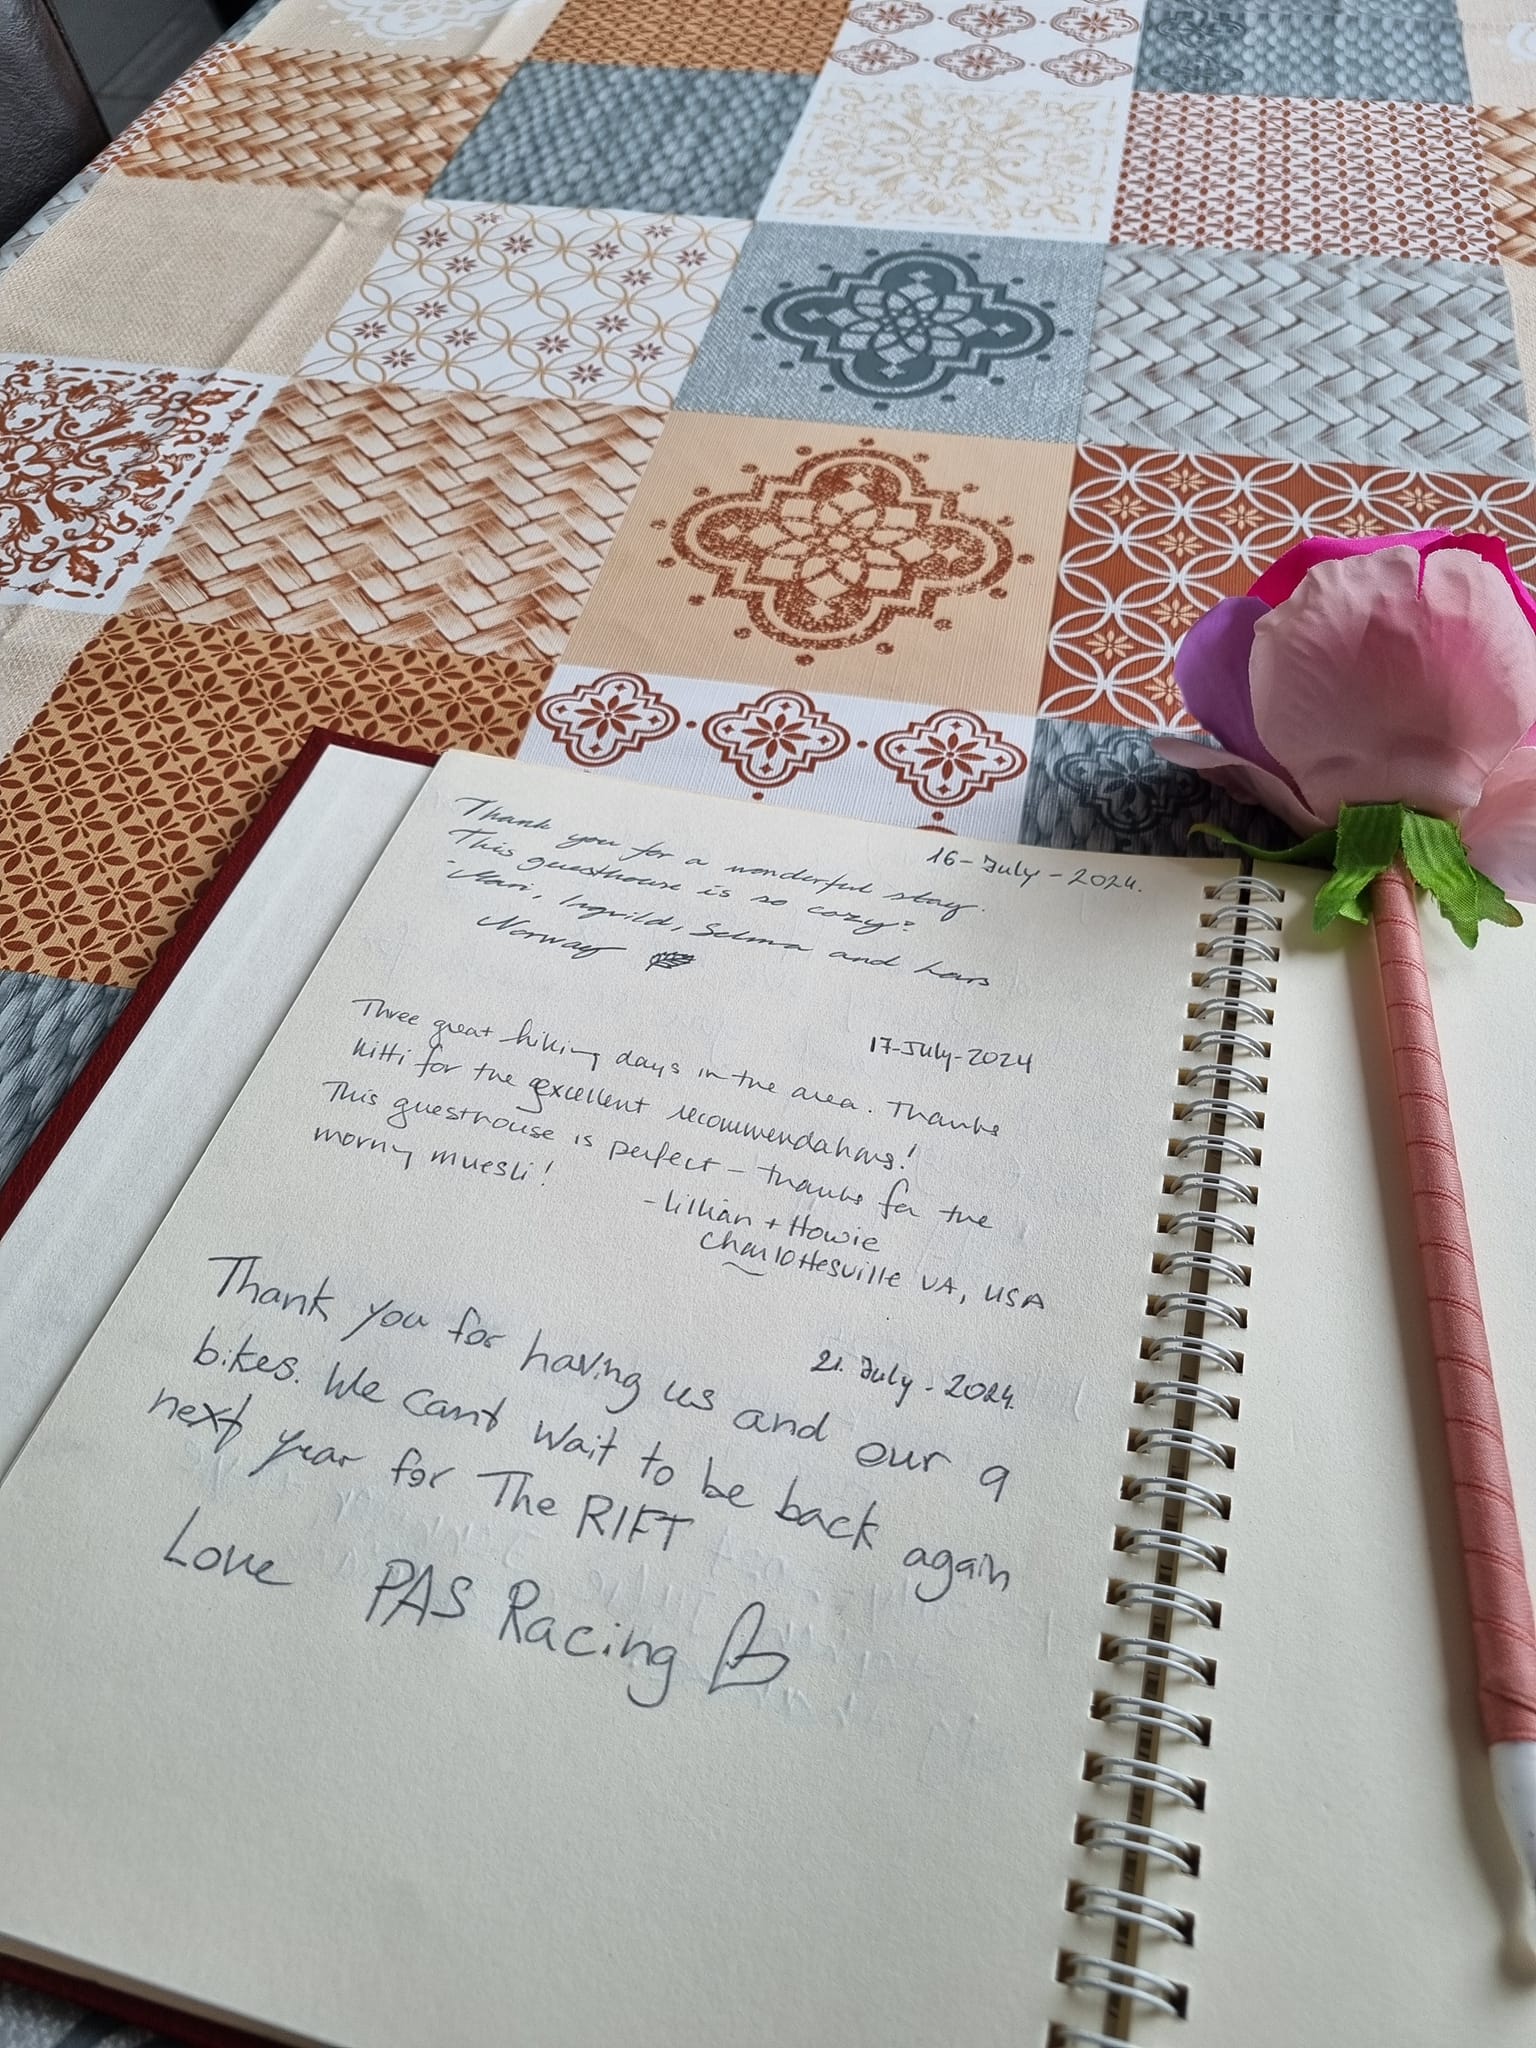 16-July-2024.
Thank you for a wonderful stay.
This guesthouse is so cozy:
- Mari, Ingvild, Selma and Lars
Norway
17-July-2024
Three great hiking days in the area. Thanks
Kitti for the excellent recommendations!
This guesthouse is perfect - thanks for the
morny muesli!
- Lillian + Howie
Charlottesville VA, USA
21. July - 2024.
Thank you for having us and our 9
bikes. We cant wait to be back again
next year for The RIFT
Love PAS Racing